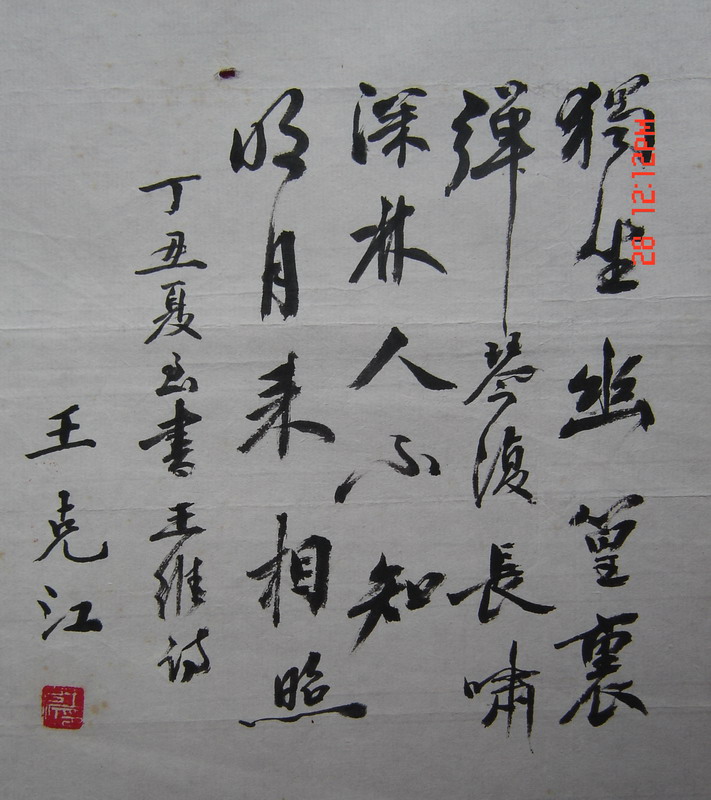 獨坐幽篁裏
彈琴復長嘯
深林人不知
明月来相照
丁丑夏
書王維诗
王克江
28 12:12PM